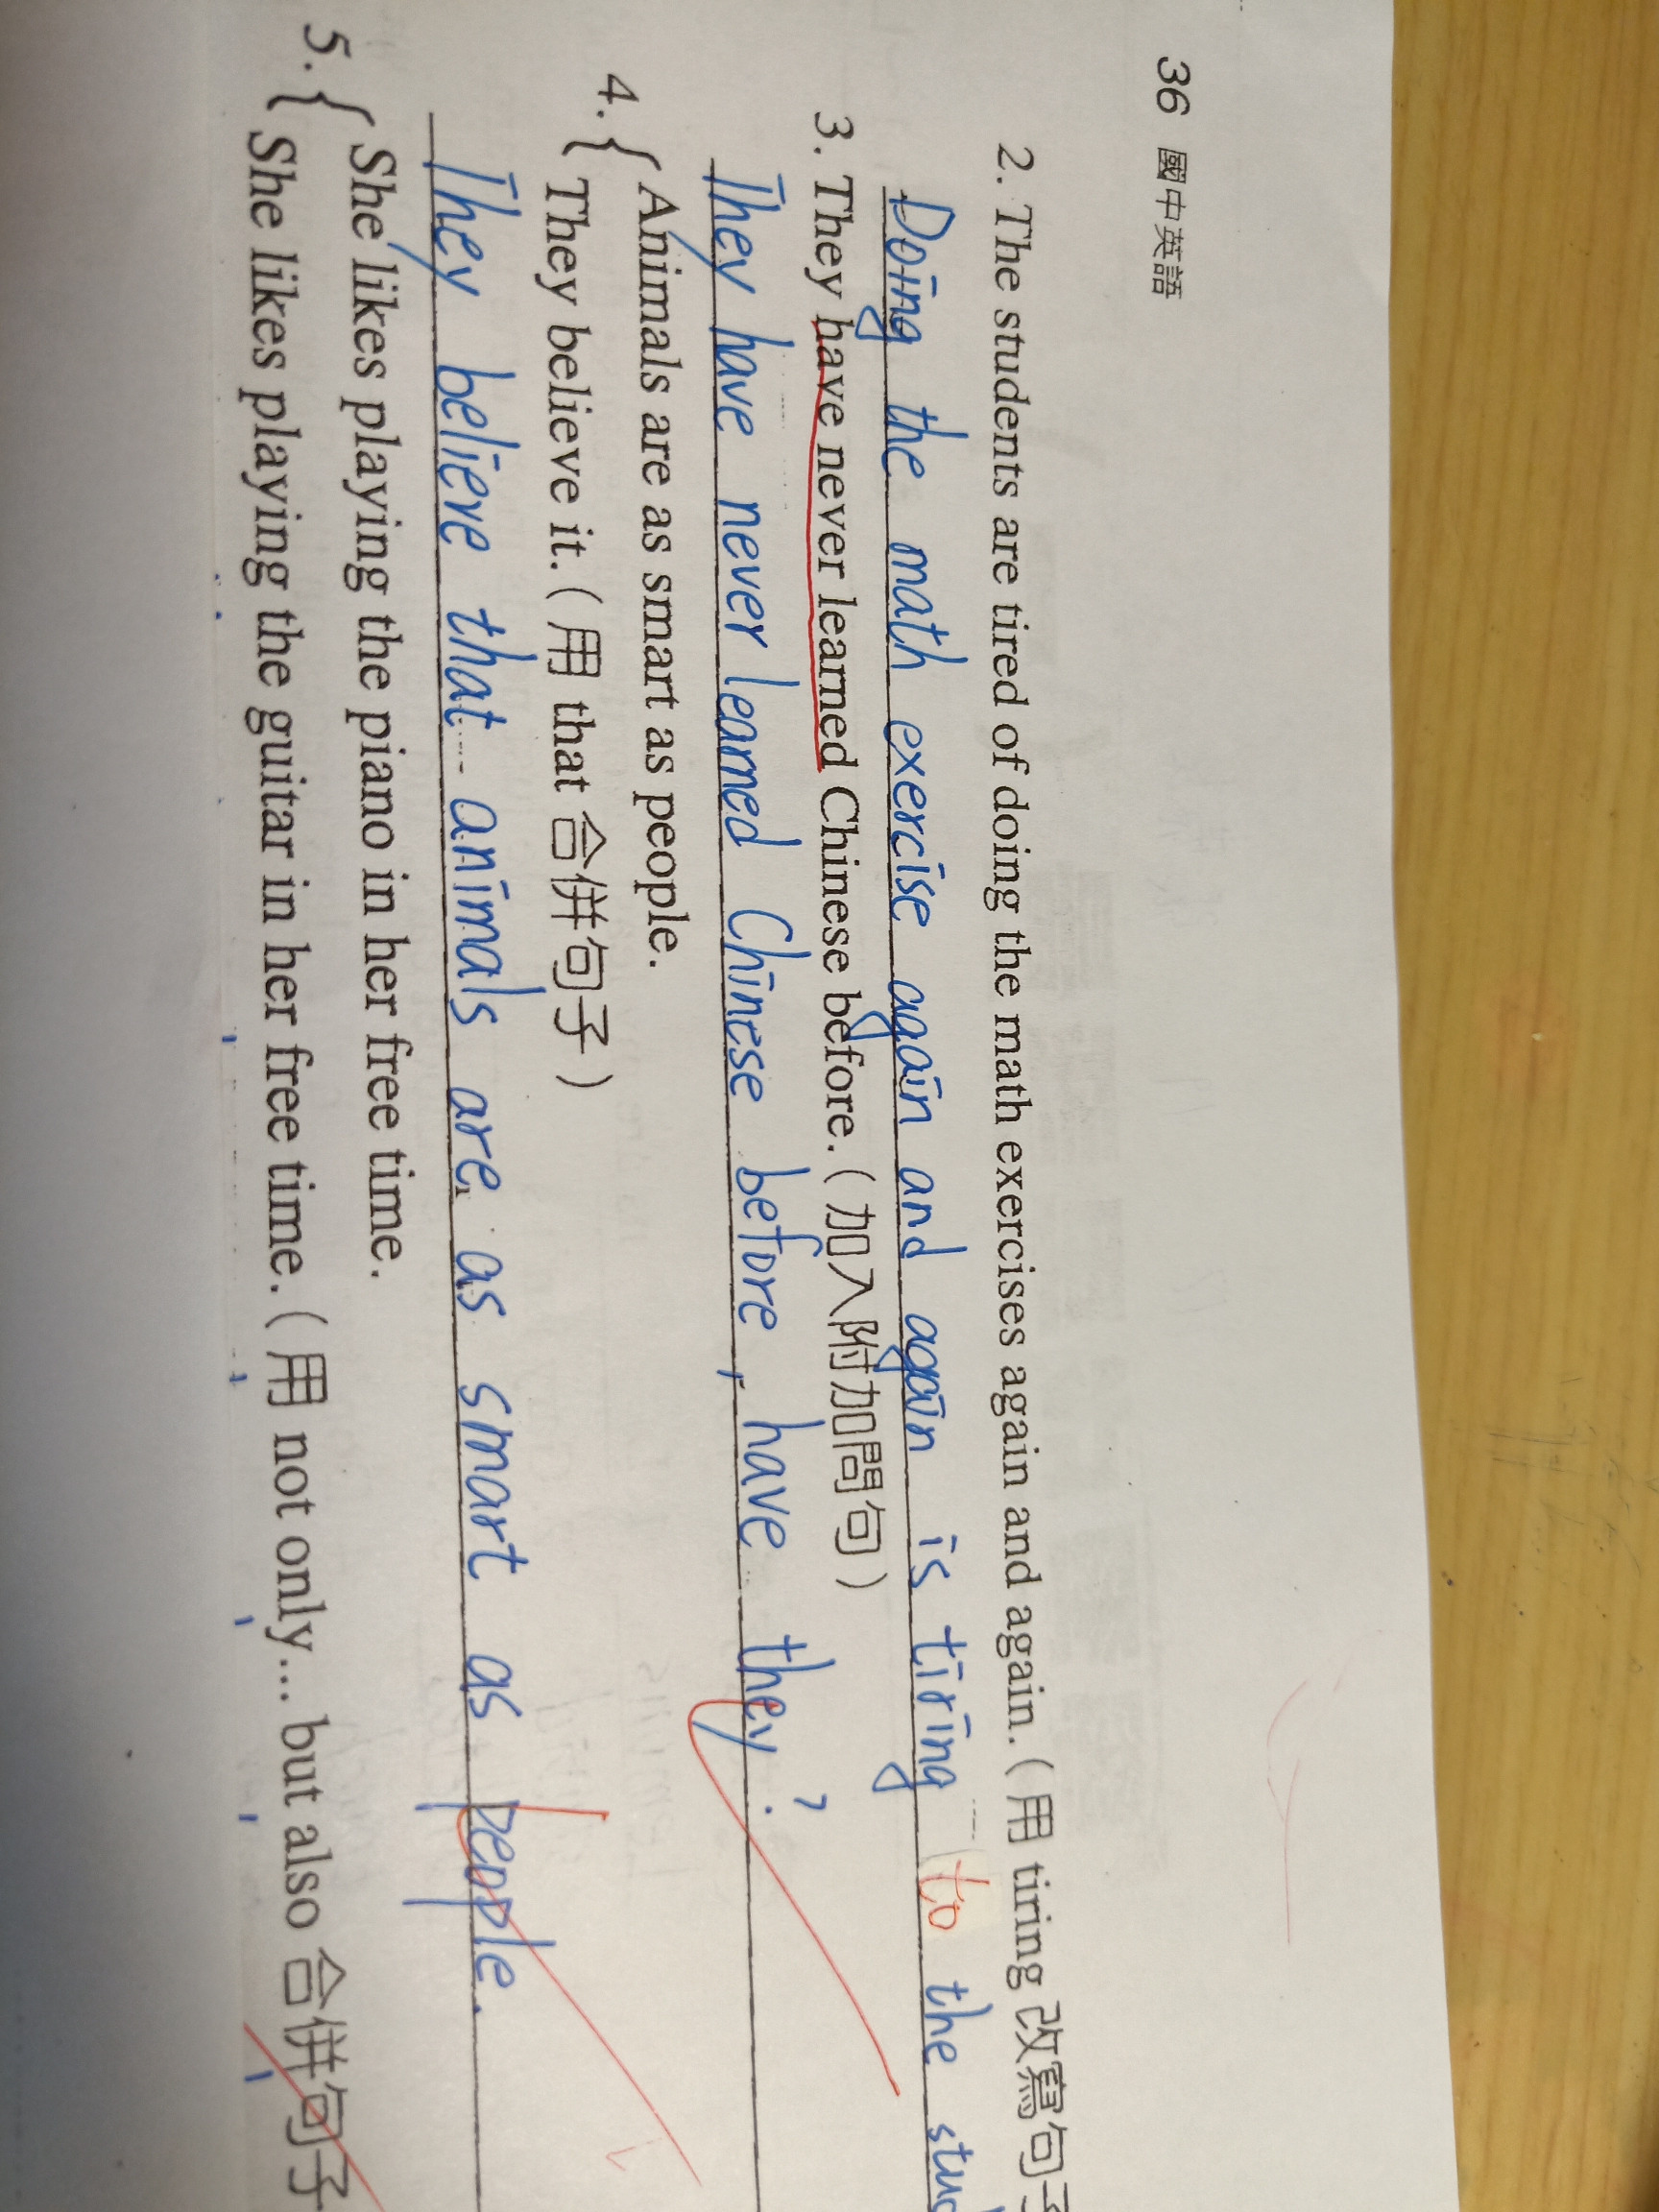 36 國中英語
2. The students are tired of doing the math exercises again and again. (用 tiring 改寫句子
Doing the math exercise again and again is tiring to the stud
3. They have never learned Chinese before. (加入附加問句)
They have never learned Chinese before, have they?
4. { Animals are as smart as people.
They believe it. (用 that 合併句子)
They believe that animals are as smart as people.
5. { She likes playing the piano in her free time.
She likes playing the guitar in her free time. (用 not only... but also 合併句子